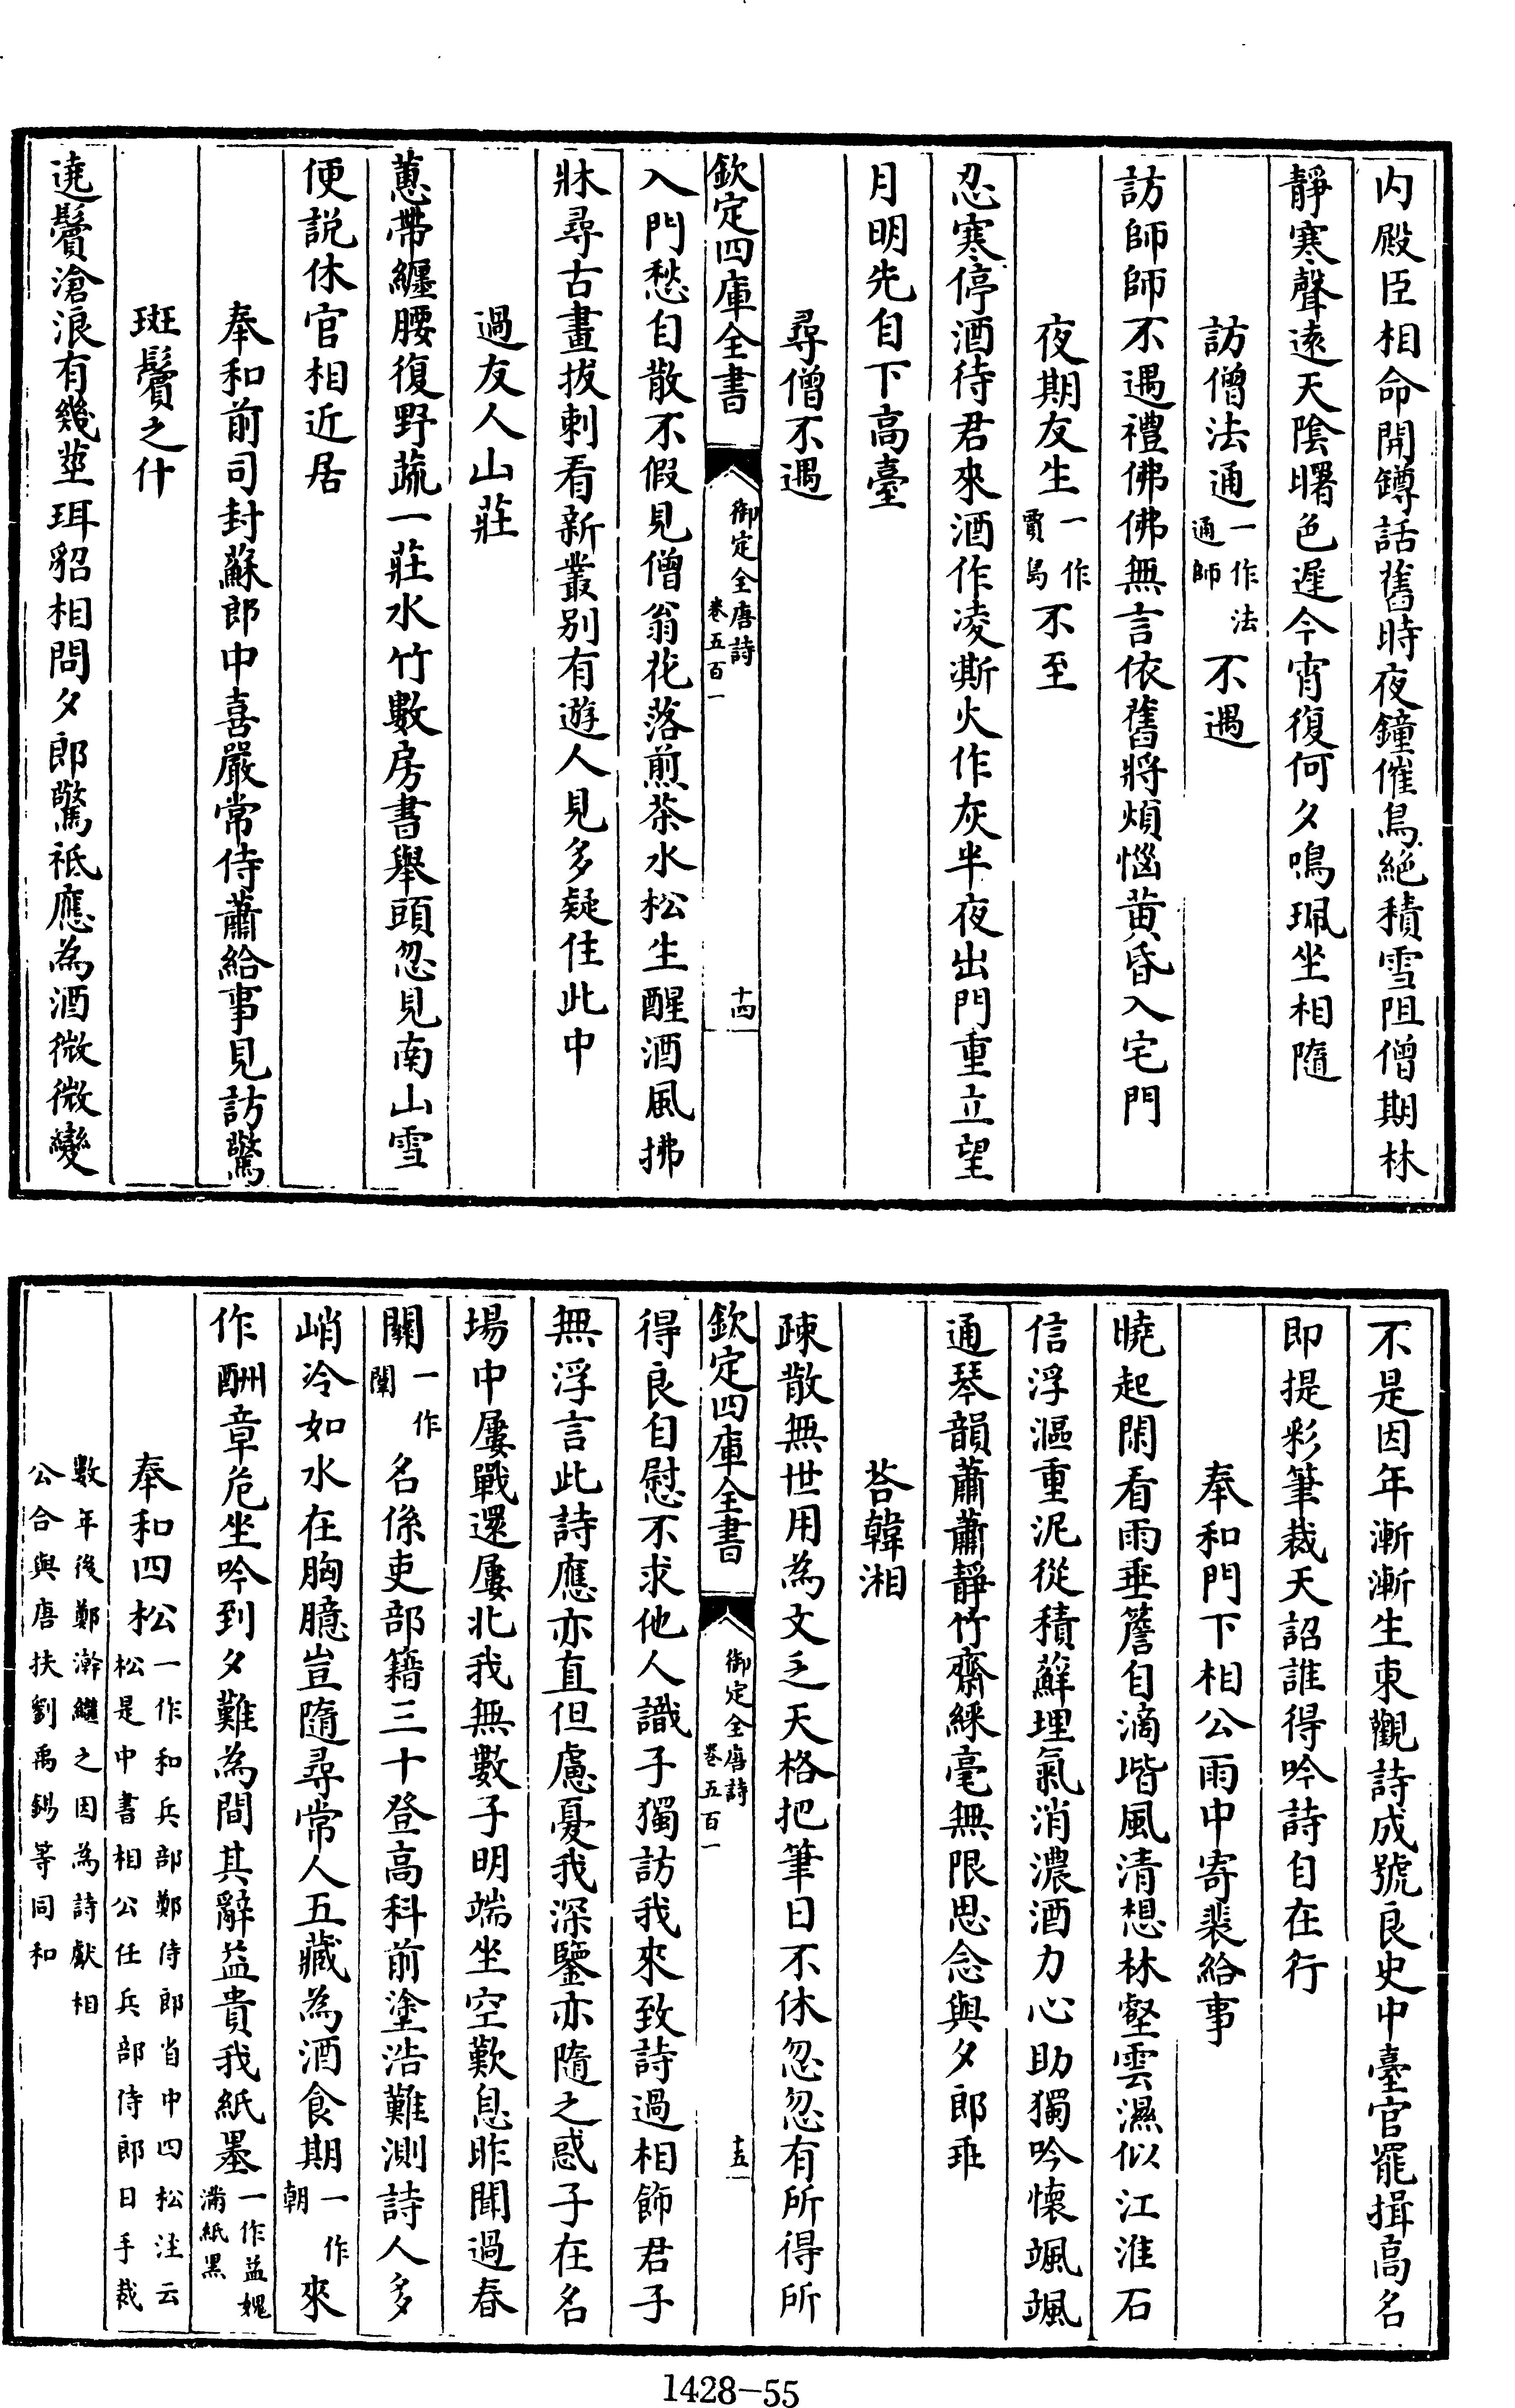 内殿臣相命開罇話舊時夜鐘催鳥絶積雪阻僧期林
静寒聲逺天陰曙色遲今宵復何夕鳴珮坐相隨
訪僧法通一作法通師不遇
訪師師不遇禮佛佛無言依舊將煩惱黄昏入宅門
夜期友生一作賈島不至
忍寒停酒待君來酒作凌澌火作灰半夜出門重立望
月明先自下高臺
尋僧不遇
欽定四庫全書
御定全唐詩
卷五百一
十四
入門愁自散不假見僧翁花落煎茶水松生醒酒風拂
牀尋古畫拔刺看新叢别有遊人見多疑住此中
過友人山莊
蕙帶纒腰復野蔬一莊水竹數房書舉頭忽見南山雪
便説休官相近居
奉和前司封蘇郎中喜嚴常侍蕭給事見訪驚
斑鬢之什
遶鬢滄浪有幾莖珥貂相問夕郎驚祗應為酒微微變
不是因年漸漸生東觀詩成號良史中臺官罷揖高名
即提彩筆裁天詔誰得吟詩自在行
奉和門下相公雨中寄裴給事
曉起閑看雨垂簷自滴堦風清想林壑雲濕似江淮石
信浮漚重泥從積蘚埋氣消濃酒力心助獨吟懷颯颯
通琴韻蕭蕭静竹齋綵毫無限思念與夕郎乖
荅韓湘
疎散無世用為文乏天格把筆日不休忽忽有所得所
欽定四庫全書
御定全唐詩
卷五百一
十五
得良自慰不求他人識子獨訪我來致詩過相飾君子
無浮言此詩應亦直但慮憂我深鑒亦隨之惑子在名
場中屢戰還屢北我無數子明端坐空歎息昨聞過春
關一作闈名係吏部籍三十登高科前塗浩難測詩人多
峭冷如水在胸臆豈隨尋常人五藏為酒食期一作朝來
作酬章危坐吟到夕難為間其辭益貴我紙墨一作益媿滿紙黑
奉和四松一作和兵部鄭侍郎省中四松注云松是中書相公任兵部侍郎日手裁
數年後鄭澣繼之因為詩獻相公合與唐扶劉禹錫等同和
1428-55